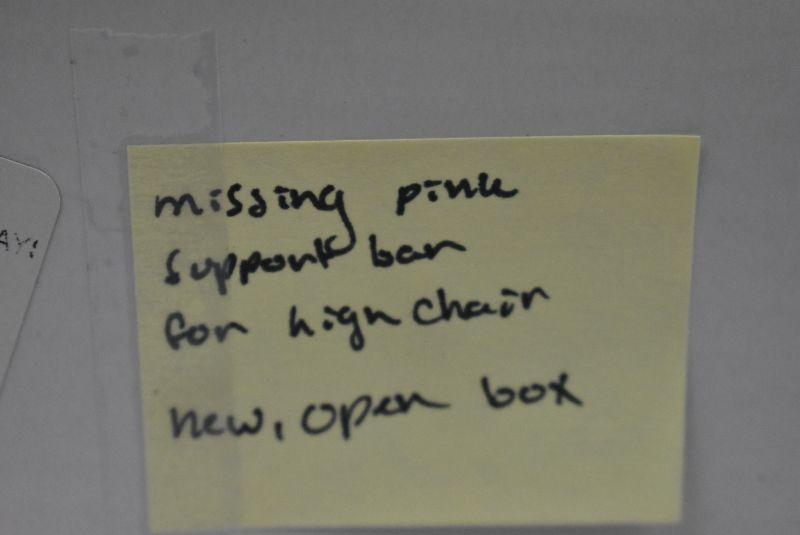 missing pink
support bar
for high chair
new, open box